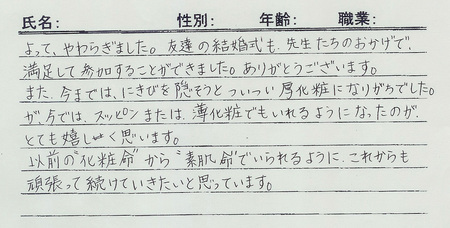 氏名: 性別: 年齢: 職業:
よって、やわらぎました。友達の結婚式も、先生たちのおかげで、
満足して参加することができました。ありがとうございます。
また、今までは、にきびを隠そうとついつい厚化粧になりがちでした。
が、今では、スッピンまたは、薄化粧でもいれるようになったのが、
とても嬉しく思います。
以前の"化粧命"から"素肌命"でいられるように、これからも
頑張って続けていきたいと思っています。